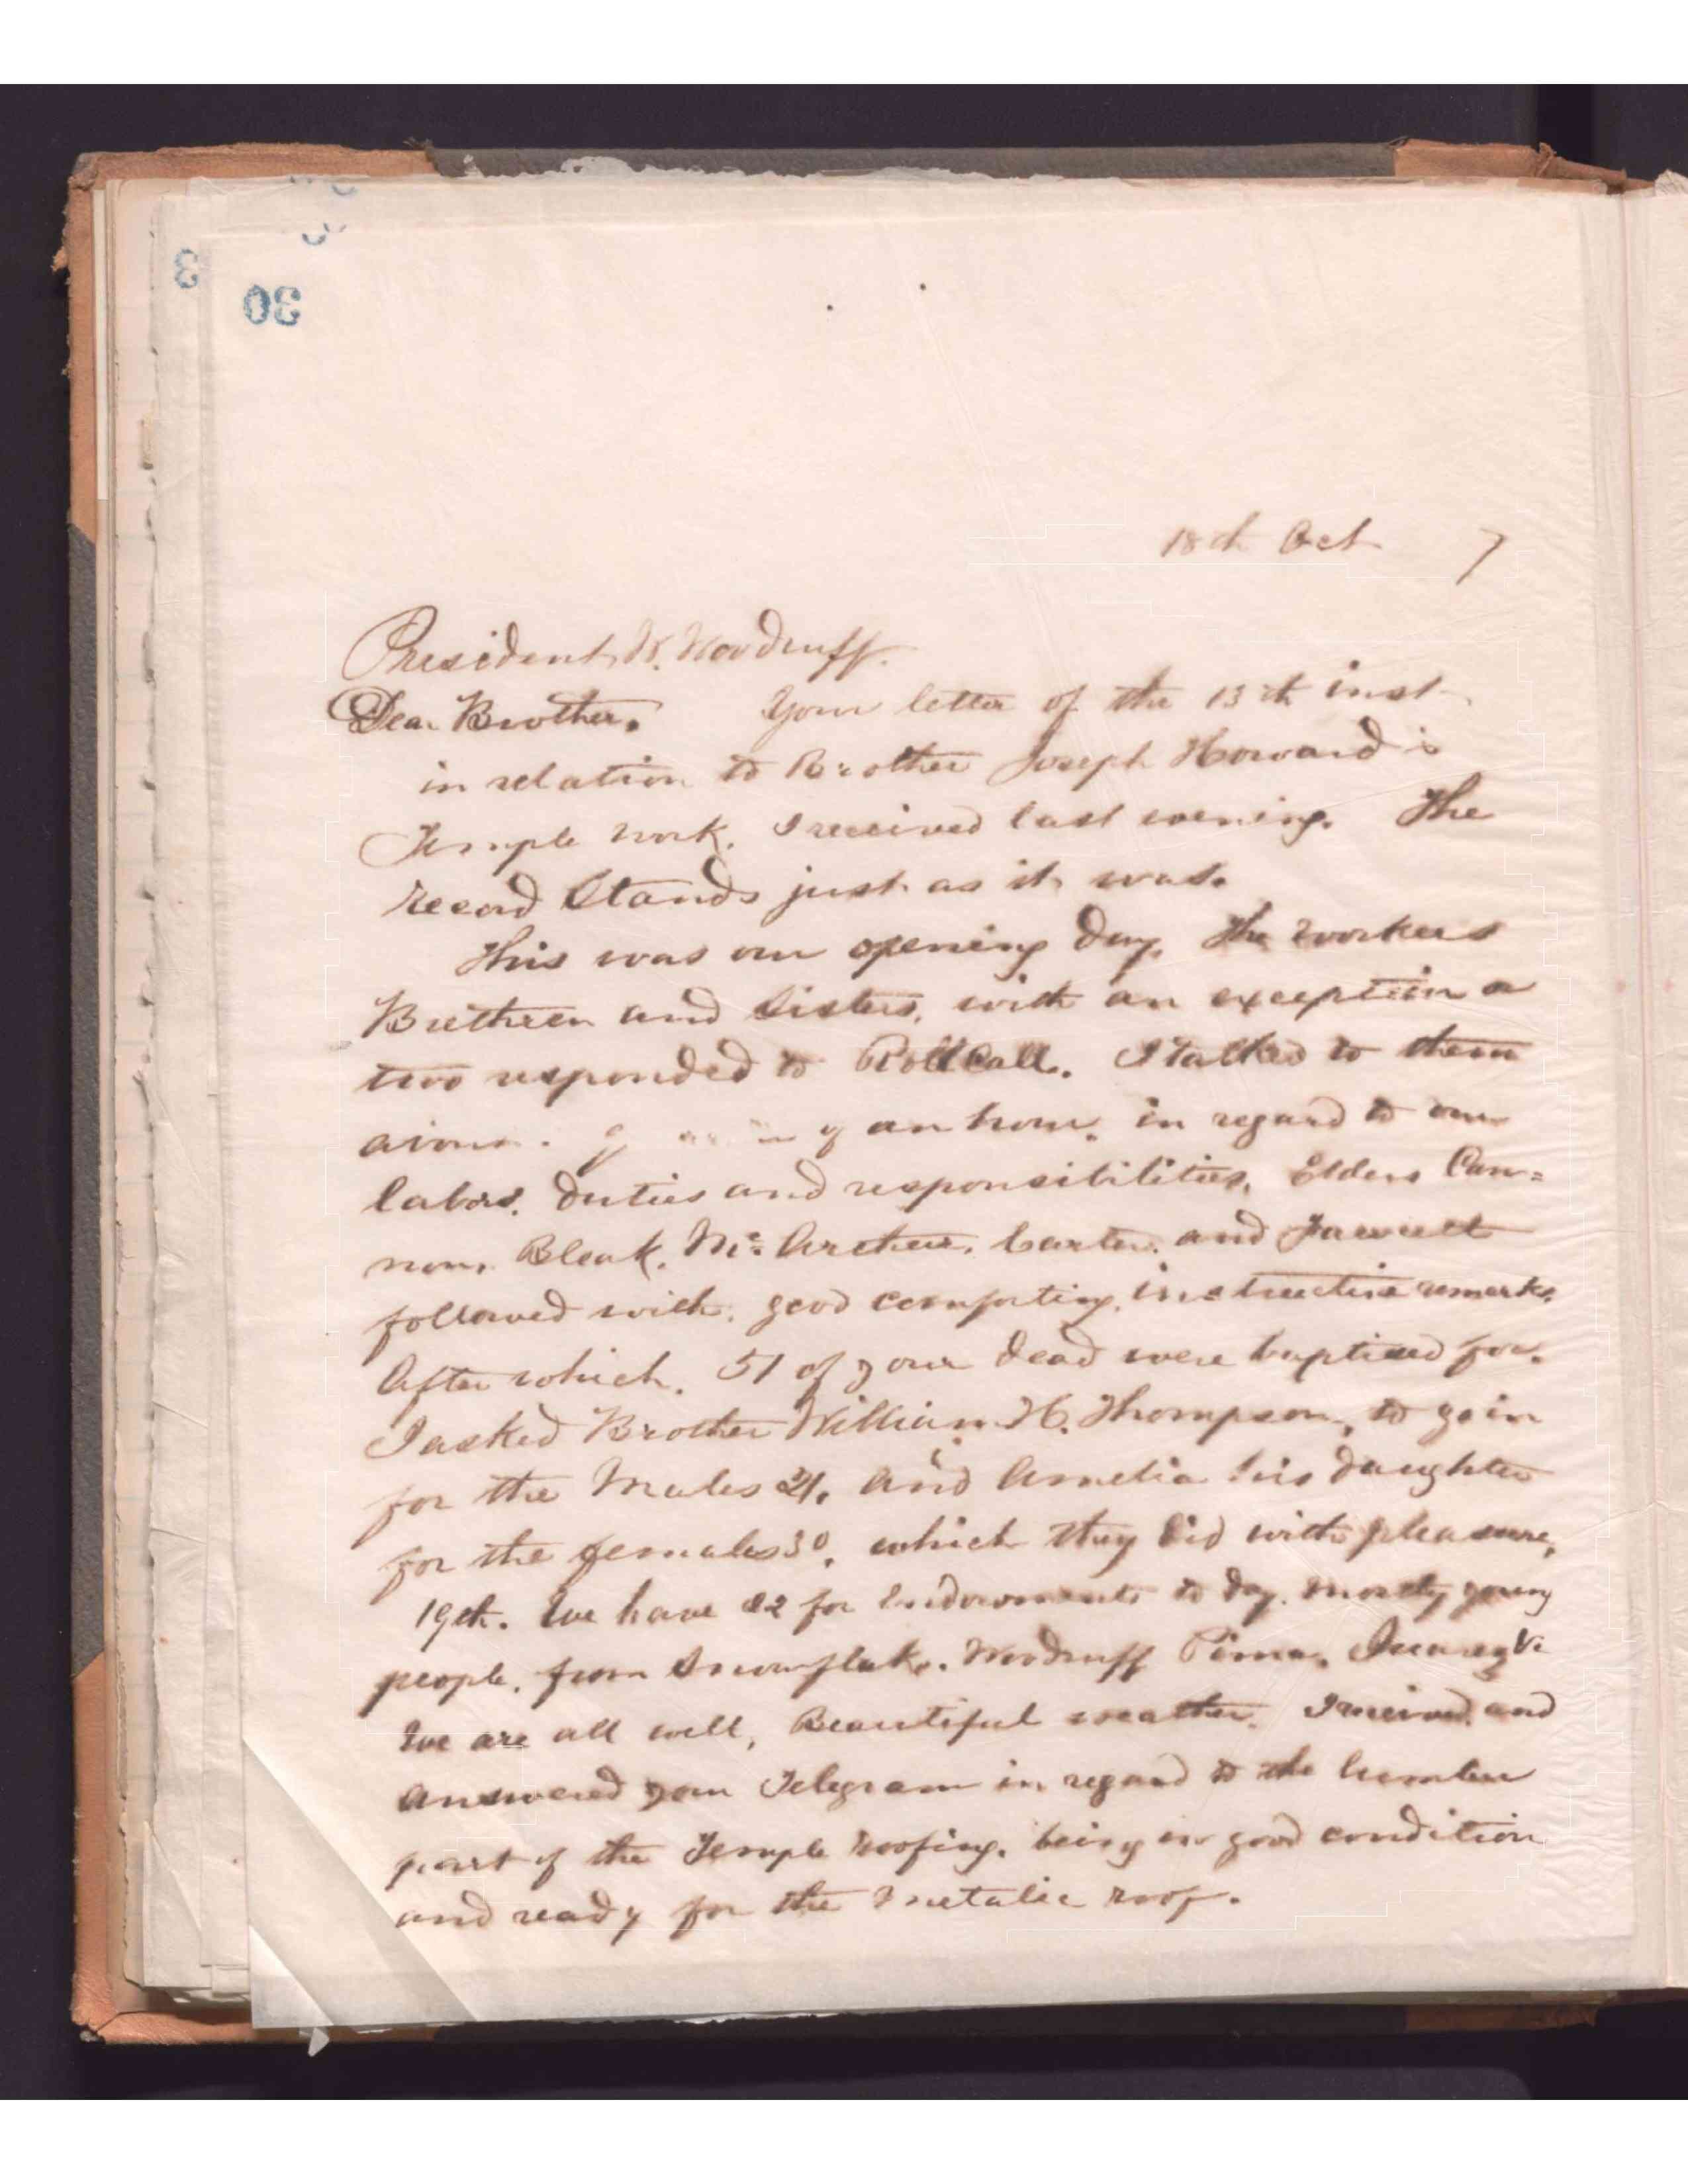 3
30
18th Oct 7
President W. Woodruff.
Dear Brother. Your letter of the 13th inst
in relation to Brother Joseph Howard is
Temple work. I received last evening. The
record Stands just as it was.
This was our opening Day. The workers
Brethren and Sisters, with an exception a
two responded to Roll Call. I talked to them
an hour. in regard to our
labors. duties and responsibilities. Elders Can=
non, Bleak, Mc. Arthur. Carter. and Fawcett
followed with. good comforting. instructive remarks.
After which. 51 of your dead were baptized for.
I asked Brother William H. Thompson, to go in
for the Males 21. and Amelia his daughter
for the females 30. which they did with pleasure.
19th. We have 82 for Endowments to day. mostly young
people. from Snowflake. Woodruff Pima.
We are all well, Beautiful weather. I received. and
answered your Telegram in regard to the lumber
part of the Temple roofing. being in good condition
and ready for the metalic roof.